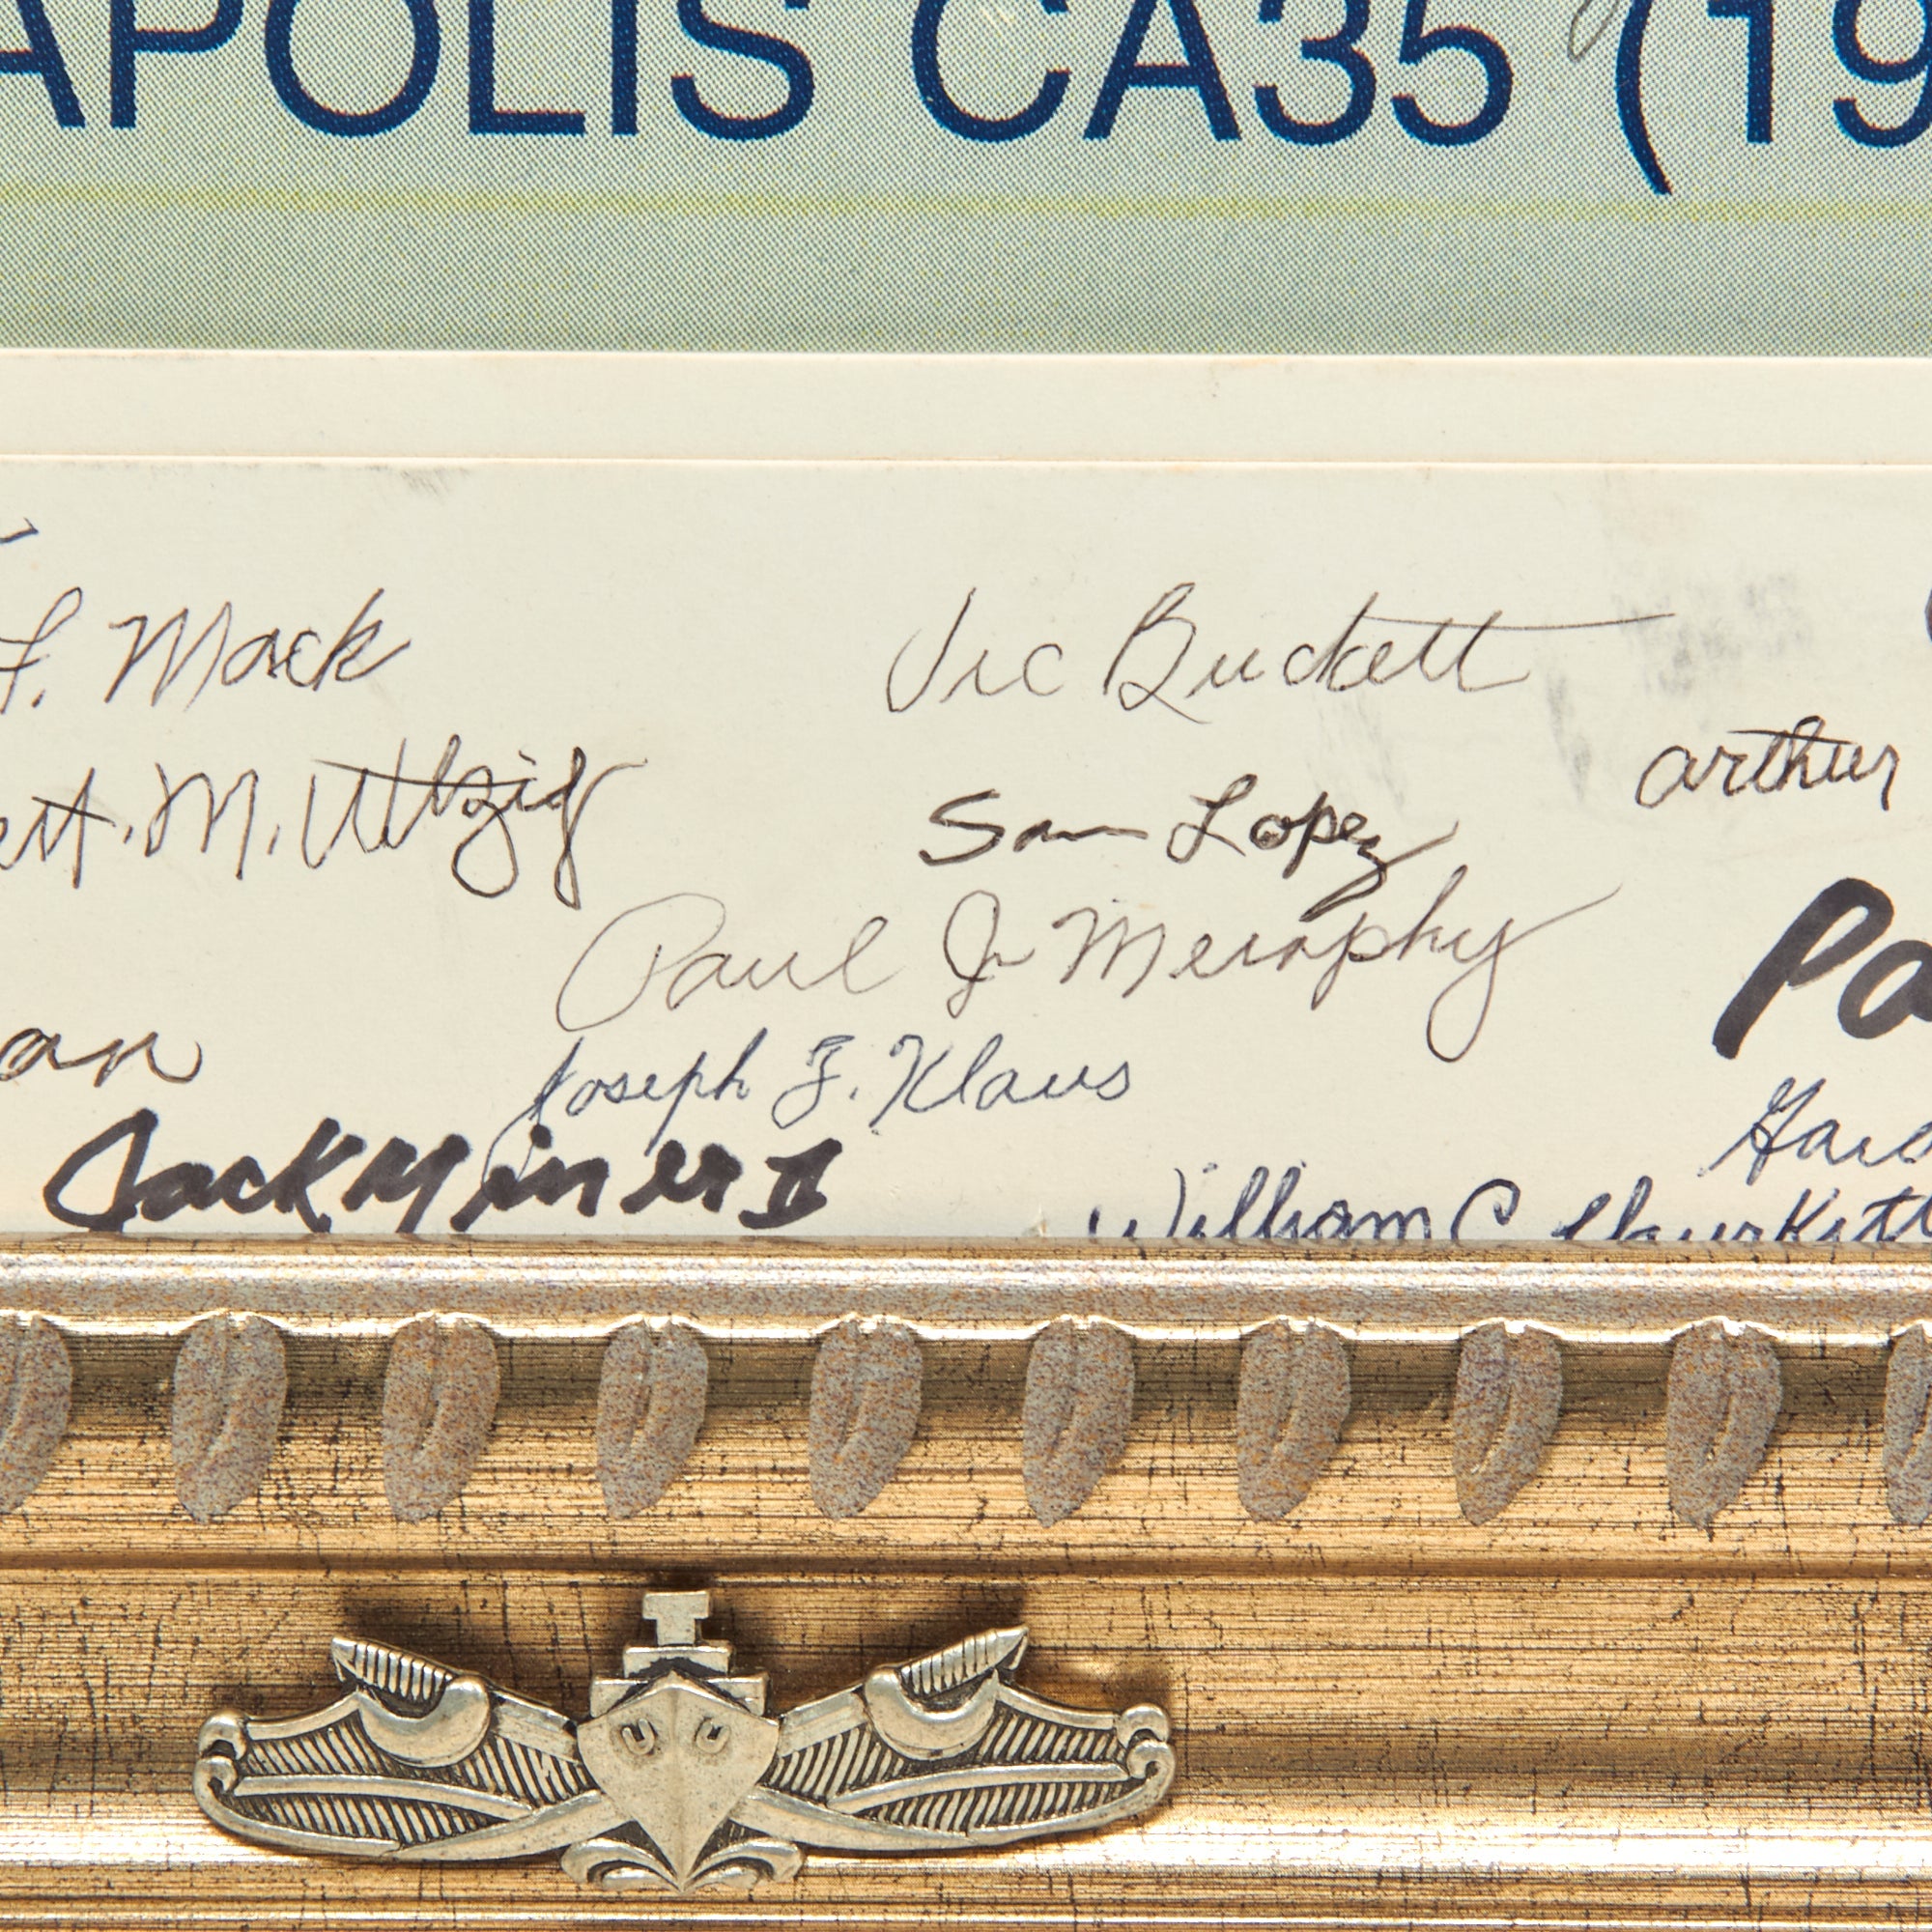 APOLIS CA35 (19
F. Mack
Vic Buckett
ett. M.
arthur
Sam Lopez
Paul J Murphy
Pa
an
Joseph F. Klaus
Jack Miner II
William C